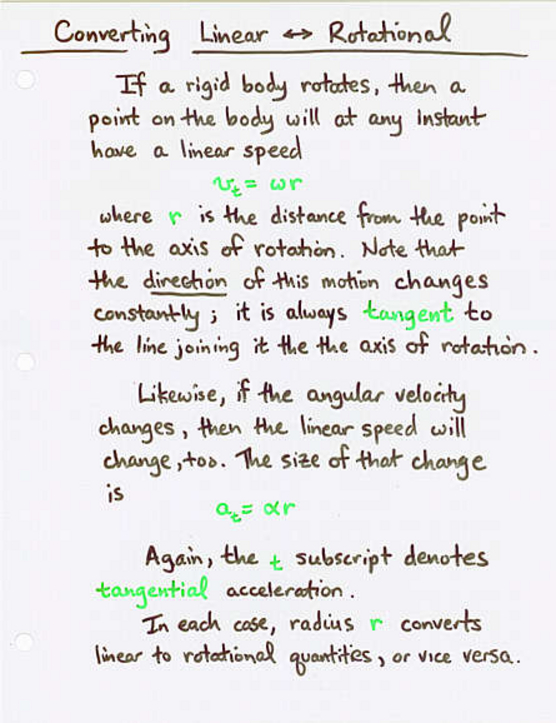 Converting Linear ↔ Rotational
If a rigid body rotates, then a
point on the body will at any instant
have a linear speed
v_t = ωr
where r is the distance from the point
to the axis of rotation. Note that
the direction of this motion changes
constantly; it is always tangent to
the line joining it the the axis of rotation.
Likewise, if the angular velocity
changes, then the linear speed will
change, too. The size of that change
is
a_t = αr
Again, the t subscript denotes
tangential acceleration.
In each case, radius r converts
linear to rotational quantities, or vice versa.